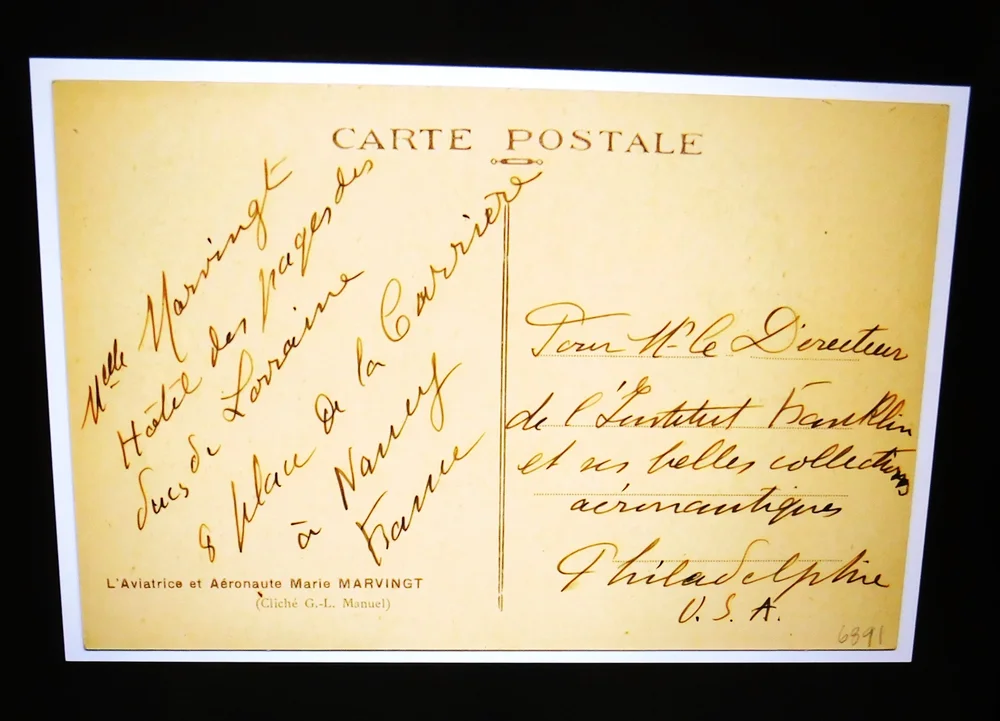 CARTE POSTALE
Melle Marvingt
Hôtel des pages des
ducs de Lorraine
8 place de la Carrière
à Nancy
France
L'Aviatrice et Aéronaute Marie MARVINGT
(Cliché G.-L. Manuel)
Pour Mr le Directeur
de l'Institut Franklin
et ses belles collections
aéronautiques
Philadelphie
U. S. A.
6391